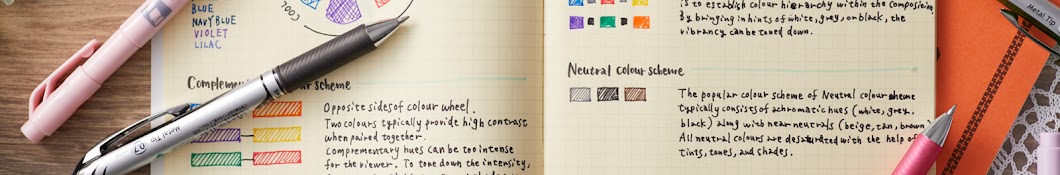 BLUE
NAVY BLUE
VIOLET
LILAC
COOL
scheme
Opposite sides of colour wheel.
Two colours typically provide high contrast
when paired together.
Complementary hues can be too intense
for the viewer. To tone down the intensity,
Metal Tip 0.7
is to establish colour hierarchy within the
By bringing in hints of white, grey, or black, the
vibrancy can be toned down.
Neutral Colour scheme
The popular colour scheme of Neutral colour scheme
typically consists of achromatic hues (white, grey,
black) along with near neutrals (beige, tan, brown)
All neutral colours are desaturated with the help of
tints, tones, and shades.
Metal Tip